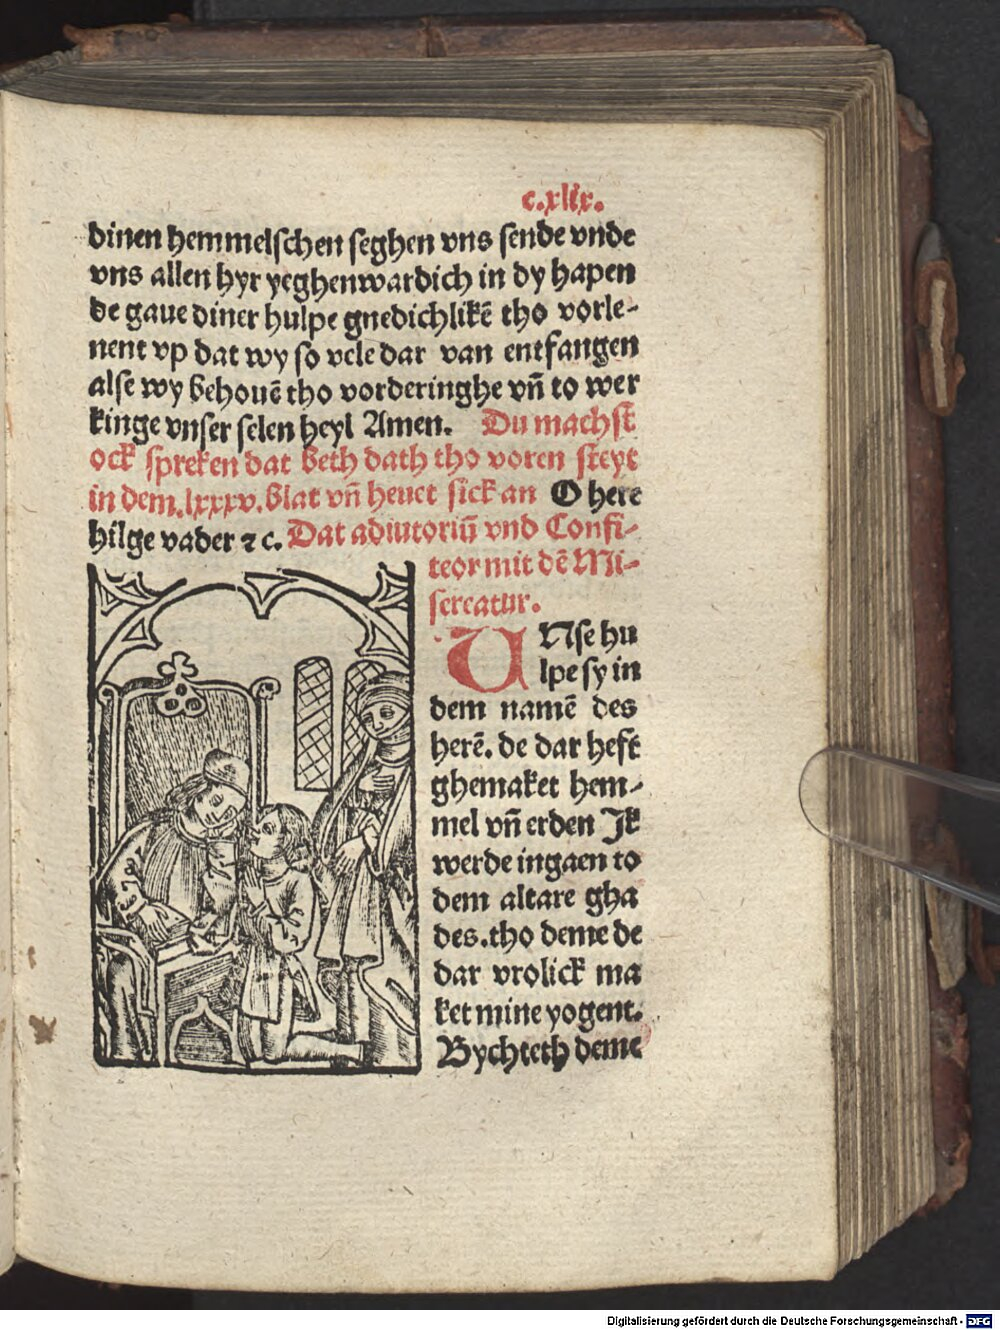 c.xlix.
dinen hemmelschen seghen vns sende vnde
vns allen hyr yeghenwardich in dy hapen
de gaue diner hulpe gnedichlikē tho vorle-
nent vp dat wy so vele dar van entfangen
alse wy behouē tho vorderinghe vn̄ to wer
kinge vnser selen heyl Amen. Du machst
ock spreken dat beth dath tho voren steyt
in dem.lxxxv.blat vn̄ heuet sick an O here
hilge vader ⁊ c. Dat adiutoriū vnd Confi-
teor mit dē Mi-
sereatur.
UNse hu
lpe sy in
dem namē des
herē. de dar heft
ghemaket hem-
mel vn̄ erden Ik
werde ingaen to
dem altare gha
des.tho deme de
dar vrolick ma
ket mine yogent.
Bychteth deme
Digitalisierung gefördert durch die Deutsche Forschungsgemeinschaft - DFG